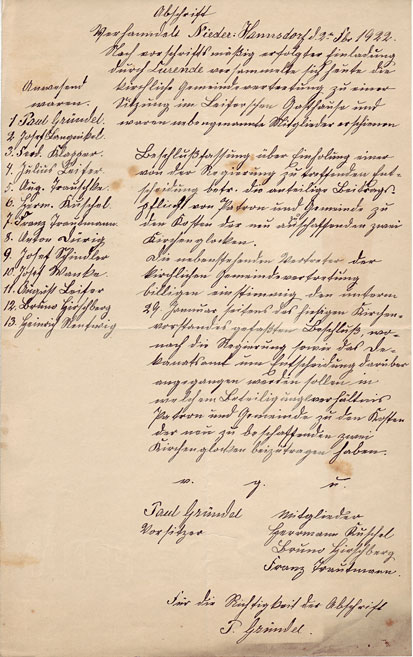 Abschrift
Verhandelt Nieder-Hannsdorf d. 2. 1922.
Nach vorschriftsmäßig erfolgter Einladung
durch Currende versammelte sich heute die
kirchliche Gemeindevertretung zu einer
Sitzung im Leiferschen Gasthause und
waren nebengenannte Mitglieder erschienen
Anwesend
waren.
1. Paul Gründel.
2. Josef Langnickel.
3. Ferd. Klapper.
4. Julius Leifer
5. Aug.
6. Herm. Kuschel
7. Franz Trautmann.
8. Anton
9. Josef Schindler
10. Josef Wanke.
11. August Leifer
12. Bruno Hirschberg
13. Heinrich Rentwig
Beschlußfassung über Einholung einer
von der Regierung zu treffenden Ent-
scheidung betr. die anteilige Beitrags
pflicht von Patron und Gemeinde zu
den Kosten der neu anschaffenden zwei
Kirchenglocken.
Die nebenstehenden Vertreter der
kirchlichen Gemeindevertretung
billigen einstimmig den unterm
29. Januar seitens des hiesigen Kirchen-
vorstandes gefaßten Beschluß, wo-
nach die Regierung sowie das De-
kanatsamt um Entscheidung darüber
angegangen werden sollen in
welchem Beteiligungsverhältnis
Patron und Gemeinde zu den Kosten
der neu zu beschaffenden zwei
Kirchenglocken beizutragen haben.
v. g. u.
Paul Gründel
Vorsitzer
Mitglieder
Herrmann Kuschel
Bruno Hirschberg
Franz Trautmann.
Für die Richtigkeit der Abschrift
P. Gründel.